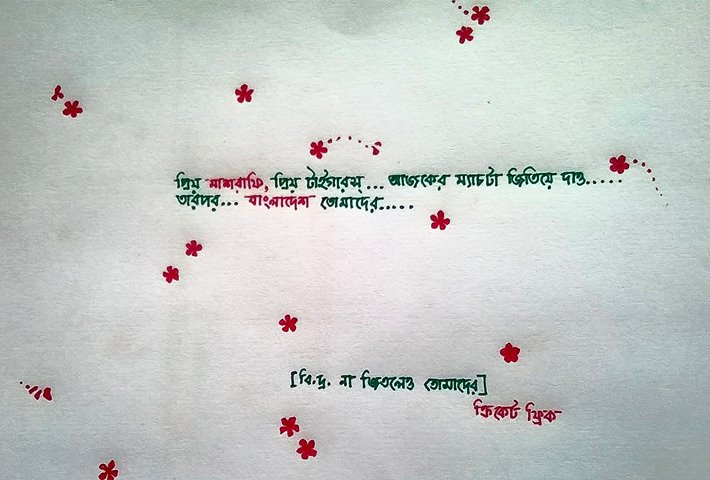 প্রিয় মাশরাফি, প্রিয় টাইগারস্... আজকের ম্যাচটা জিতিয়ে দাও.....
তারপর... বাংলাদেশ তোমাদের.....
[বি.দ্র. না জিতলেও তোমাদের]
ক্রিকেট ফ্রিক